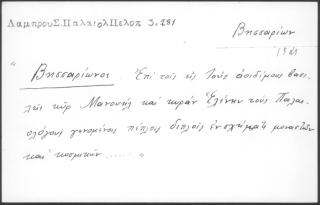 Λαμπρου Σ. Παλαιολ Πελοπ 3.281
Βησσαρίων
"Βησσαρίωνος. Ἐπὶ τοῖς εἰς τοὺς ἀοιδίμους βασι
λεῖς κῦρ Μανουὴλ καὶ κυρὰν Ἑλένην τοὺς Παλαι
ολόγους γενομένοις πέπλοις διπλοῖς ἐν σχήματι μοναστῶν
καὶ κοσμικῶν ....."